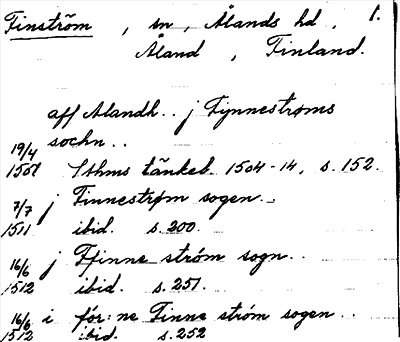 Finström , sn , Ålands hd , 1.
Åland , Finland.
aff Alandh . . j Fynnestroms
sochn . .
19/4
1507 Sthms tänkeb. 1504-14, s. 152.
7/7 j Finnestrøm sogen . .
1511 ibid. s. 200.
16/6 j Ffinne ström sogn . .
1512 ibid. s. 251.
16/6 i för:ne Finne ström sogen . .
1512 ibid. s. 252